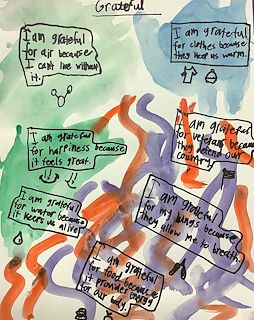 Grateful
I am grateful
for air because
I can't live without
it.
I am grateful
for clothes because
they keep us warm.
I am grateful
for happiness because
it feels great.
I am grateful
for
because
they defend our
country.
I am grateful
for water because
it keeps us alive
I am grateful
for my lungs because
they allow me to breath
I am grateful
for food because
it provides energy
for our body.